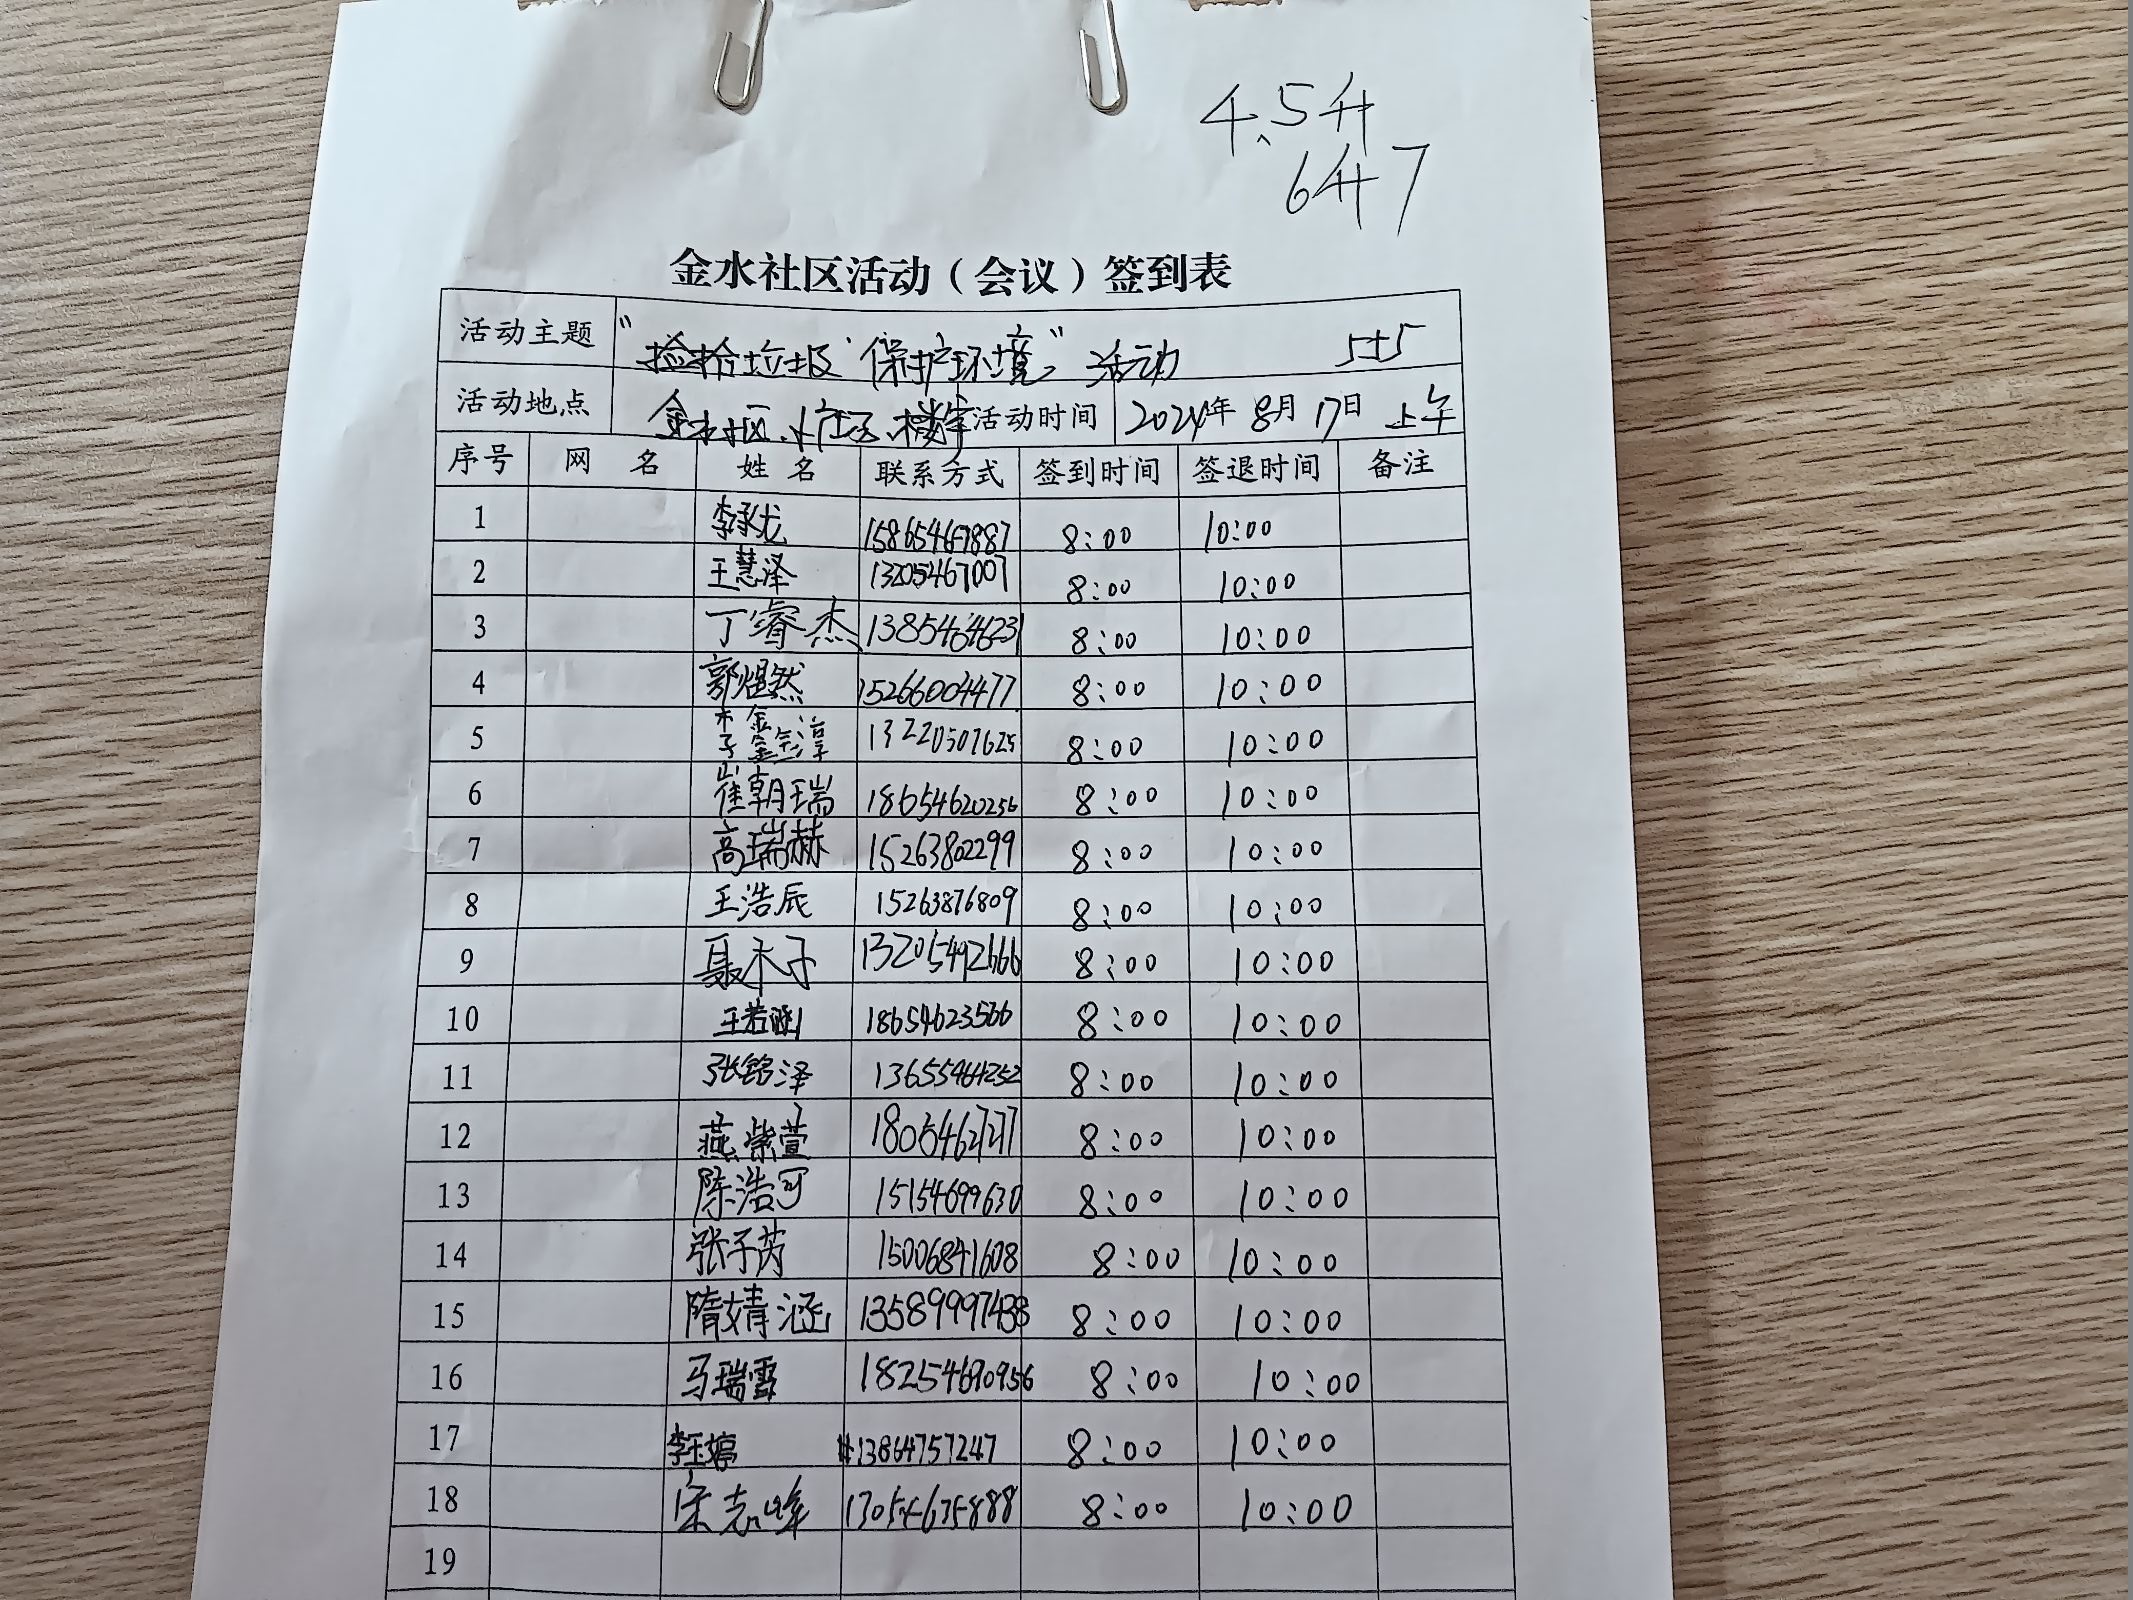 4.5升
6升7
金水社区活动（会议）签到表
活动主题 "捡拾垃圾 保护环境"活动 5±5
活动地点 金水社区 活动时间 2024年 8月 17日 上午
序号 网 名 姓 名 联系方式 签到时间 签退时间 备注
1 李承龙 15865467887 8:00 10:00
2 王慧泽 13205467007 8:00 10:00
3 丁睿杰 13854646231 8:00 10:00
4 郭煜然 15266004477 8:00 10:00
5 李鑫淳 13220507625 8:00 10:00
6 崔朝瑞 18654620256 8:00 10:00
7 高瑞赫 15263802299 8:00 10:00
8 王浩辰 15263876809 8:00 10:00
9 聂木子 13205492666 8:00 10:00
10 王若涵 18654623566 8:00 10:00
11 张铭泽 13655464252 8:00 10:00
12 燕紫萱 18054627277 8:00 10:00
13 陈浩可 15154699630 8:00 10:00
14 张子芮 15006841608 8:00 10:00
15 隋婧涵 13589997438 8:00 10:00
16 马瑞雪 18254690956 8:00 10:00
17 李玉婷 13864757247 8:00 10:00
18 宋志峰 13054675888 8:00 10:00
19